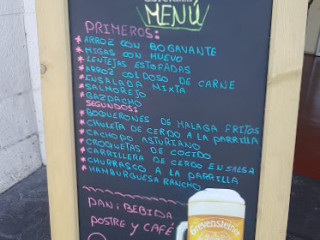 MENÚ
PRIMEROS:
* ARROZ CON BOGAVANTE
* MIGAS CON HUEVO
* LENTEJAS ESTOFADAS
* ARROZ CALDOSO DE CARNE
* ENSALADA MIXTA
* SALMOREJO
* GAZPACHO
SEGUNDOS:
* BOQUERONES DE MALAGA FRITOS
* CHULETA DE CERDO A LA PARRILLA
* CACHOPO ASTURIANO
* CROQUETAS DE COCIDO
* CARRILLERA DE CERDO EN SALSA
* CHURRASCO A LA PARRILLA
* HAMBURGUESA RANCHO
PAN, BEBIDA
POSTRE Y CAFÉ